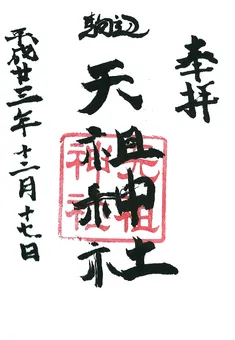 奉拝
駒込
天祖神社
天祖
神社
平成廿三年十二月十七日